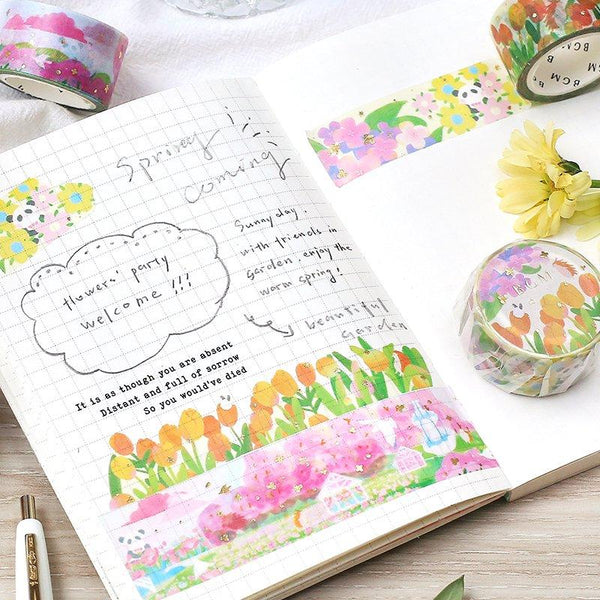 Spring
coming
Sunny day.
with friends in
garden, enjoy the
worm spring!
beautiful
garden
flowers' party
welcome !!!
It is as though you are absent
Distant and full of sorrow
So you would've died
BGM